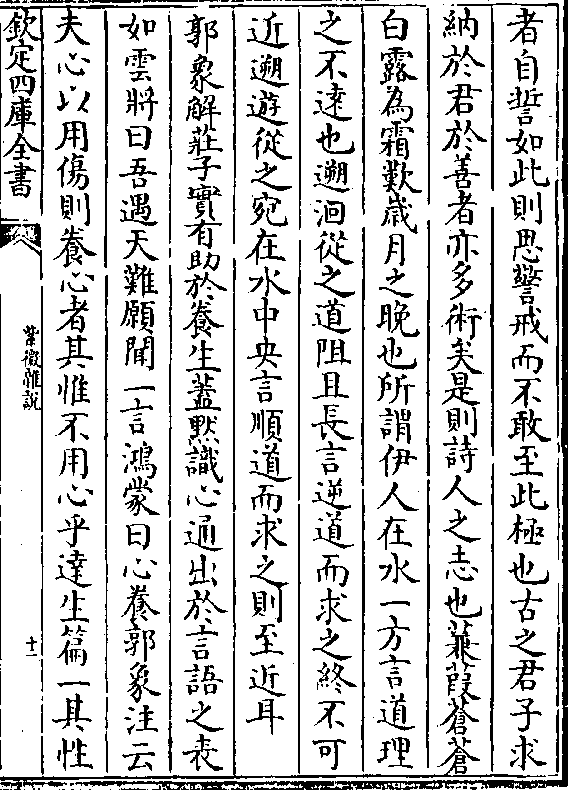 者自誓如此則思警戒而不敢至此極也古之君子求
納於君於善者亦多術矣是則詩人之志也蒹葭蒼蒼
白露為霜歎歲月之晚也所謂伊人在水一方言道理
之不遠也遡洄從之道阻且長言逆道而求之終不可
近遡遊從之宛在水中央言順道而求之則至近耳
郭象解莊子實有助於養生蓋默識心通出於言語之表
如雲將曰吾遇天難願聞一言鴻蒙曰心養郭象注云
夫心以用傷則養心者其惟不用心乎達生篇一其性
欽定四庫全書
紫微雜說
十二